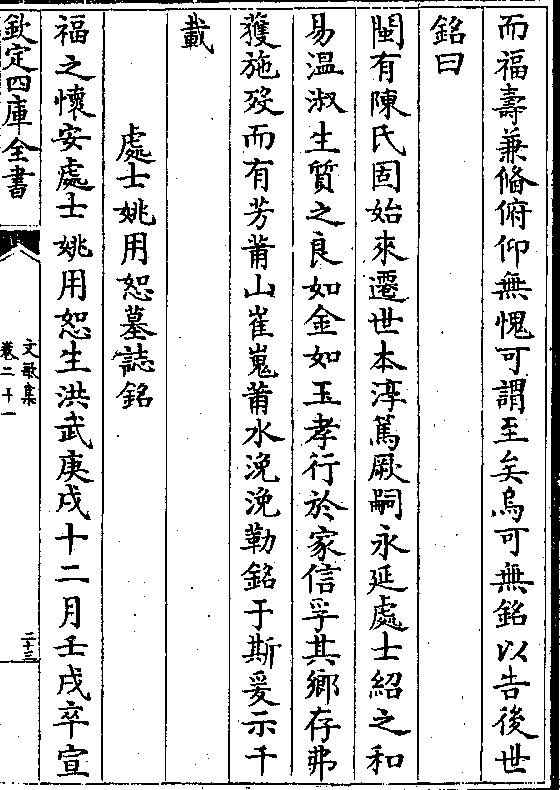 而福壽兼脩俯仰無愧可謂至矣烏可無銘以告後世
銘曰
閩有陳氏固始來遷世本淳篤厥嗣永延處士紹之和
易温淑生質之良如金如玉孝行於家信孚其鄉存弗
獲施殁而有芳莆山崔嵬莆水浼浼勒銘于斯爰示千
載
處士姚用恕墓誌銘
福之懷安處士姚用恕生洪武庚戌十二月壬戌卒宣
欽定四庫全書
文敏集
卷二十一
二十三